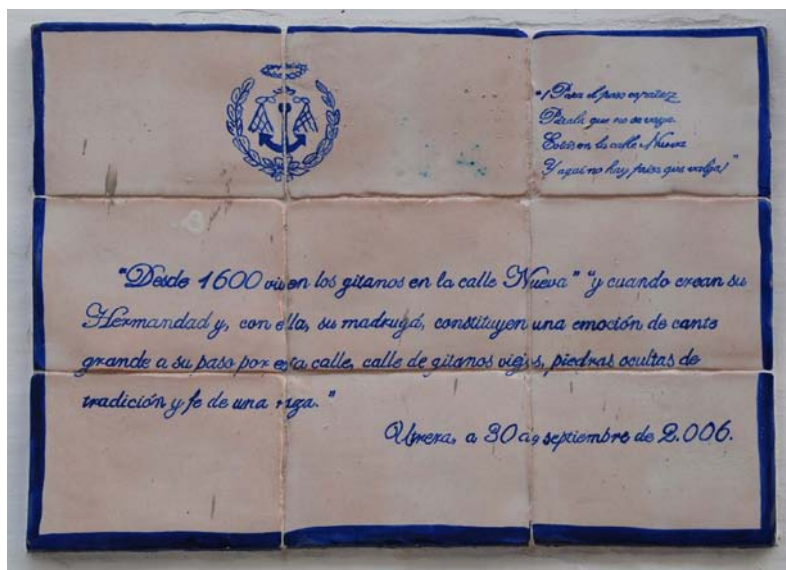 "¡Para el paso capataz
Párala que no se vaya.
Estás en la calle Nueva
Y aquí no hay prisa que valga!"
"Desde 1600 viven los gitanos en la calle Nueva" "y cuando crean su
Hermandad y, con ella, su madrugá, constituyen una emoción de cante
grande a su paso por esta calle, calle de gitanos viejos, piedras ocultas de
tradición y fe de una raza."
Utrera, a 30 de septiembre de 2.006.